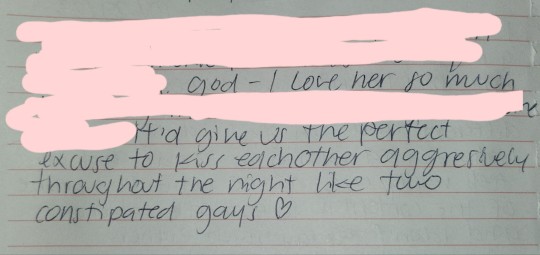 god - I love her so much
It'd give us the perfect
excuse to kiss eachother aggresively
throughout the night like two
constipated gays ♡